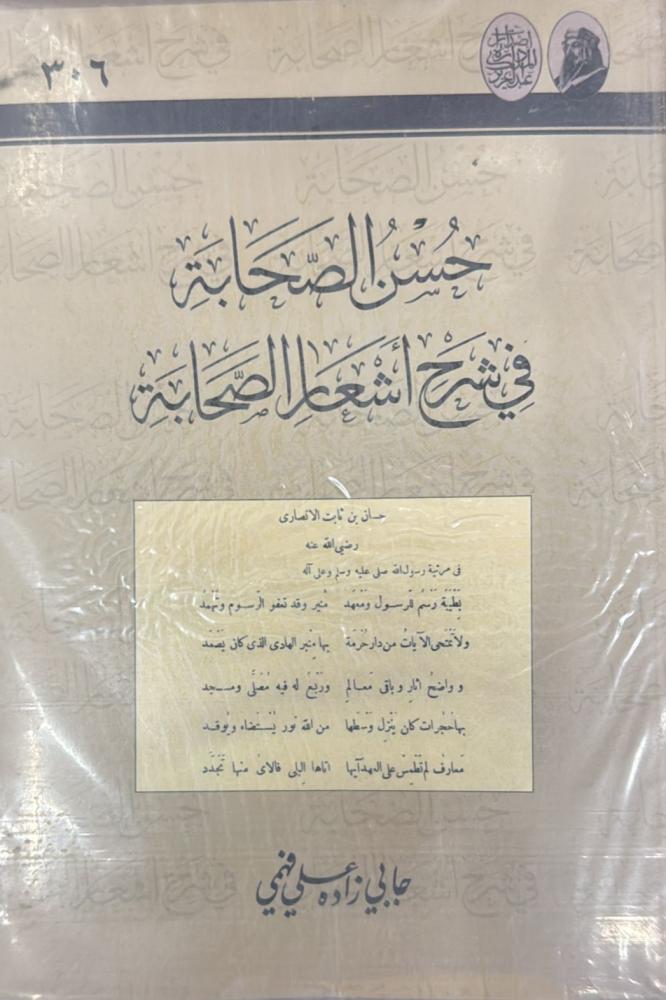 ٣٠٦
إصدارات
دارة الملك
عبدالعزيز
حُسْنُ الصَّحَابَةِ
فِي شَرْحِ أَشْعَارِ الصَّحَابَةِ
حسان بن ثابت الانصارى
رضي الله عنه
فى مرثية رسول الله صلى عليه وسلم وعلى آله
بِطَيْبَة رَسْم للرسول وَمَعْهد مُنير وقد تعفو الرسوم وتهمد
ولا تمتحى الآيات من دار حُرْمَة بها منبر الهادى الذى كان يَصْعَد
و واضحُ اثار و باقى مَعالم ورَبْعٌ له فيه مُصَلَّى ومسجد
بها حُجرات كان يَنْزِل وَسْطها من الله نور يُسْتضاء ويُوقد
مَعارفُ لم تُطْمَس على العهد آيها اتاها البلى فالآىُ منها تَجَدَّد
جابي زاده علي فهمي